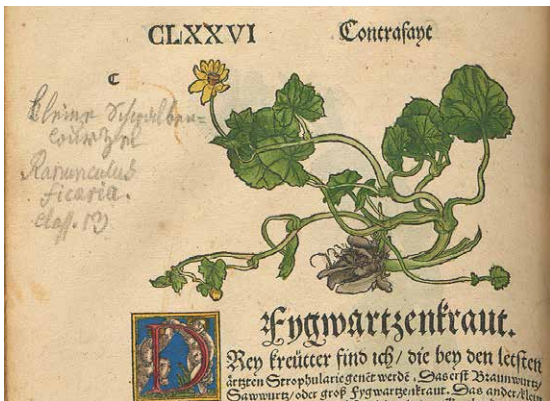 CLXXVI Contrafayt
C
kleine Schwalben=
wurzel
Ranunculus
ficaria.
Class. 13
Fygwartzenkraut.
DRey kreütter find ich / die bey den letsten
ärtzten Strophularie genẽt werdẽ. Das erst Braunwurtz /
Sawwurtz / oder groß Fygwartzenkraut. Das ander / klein